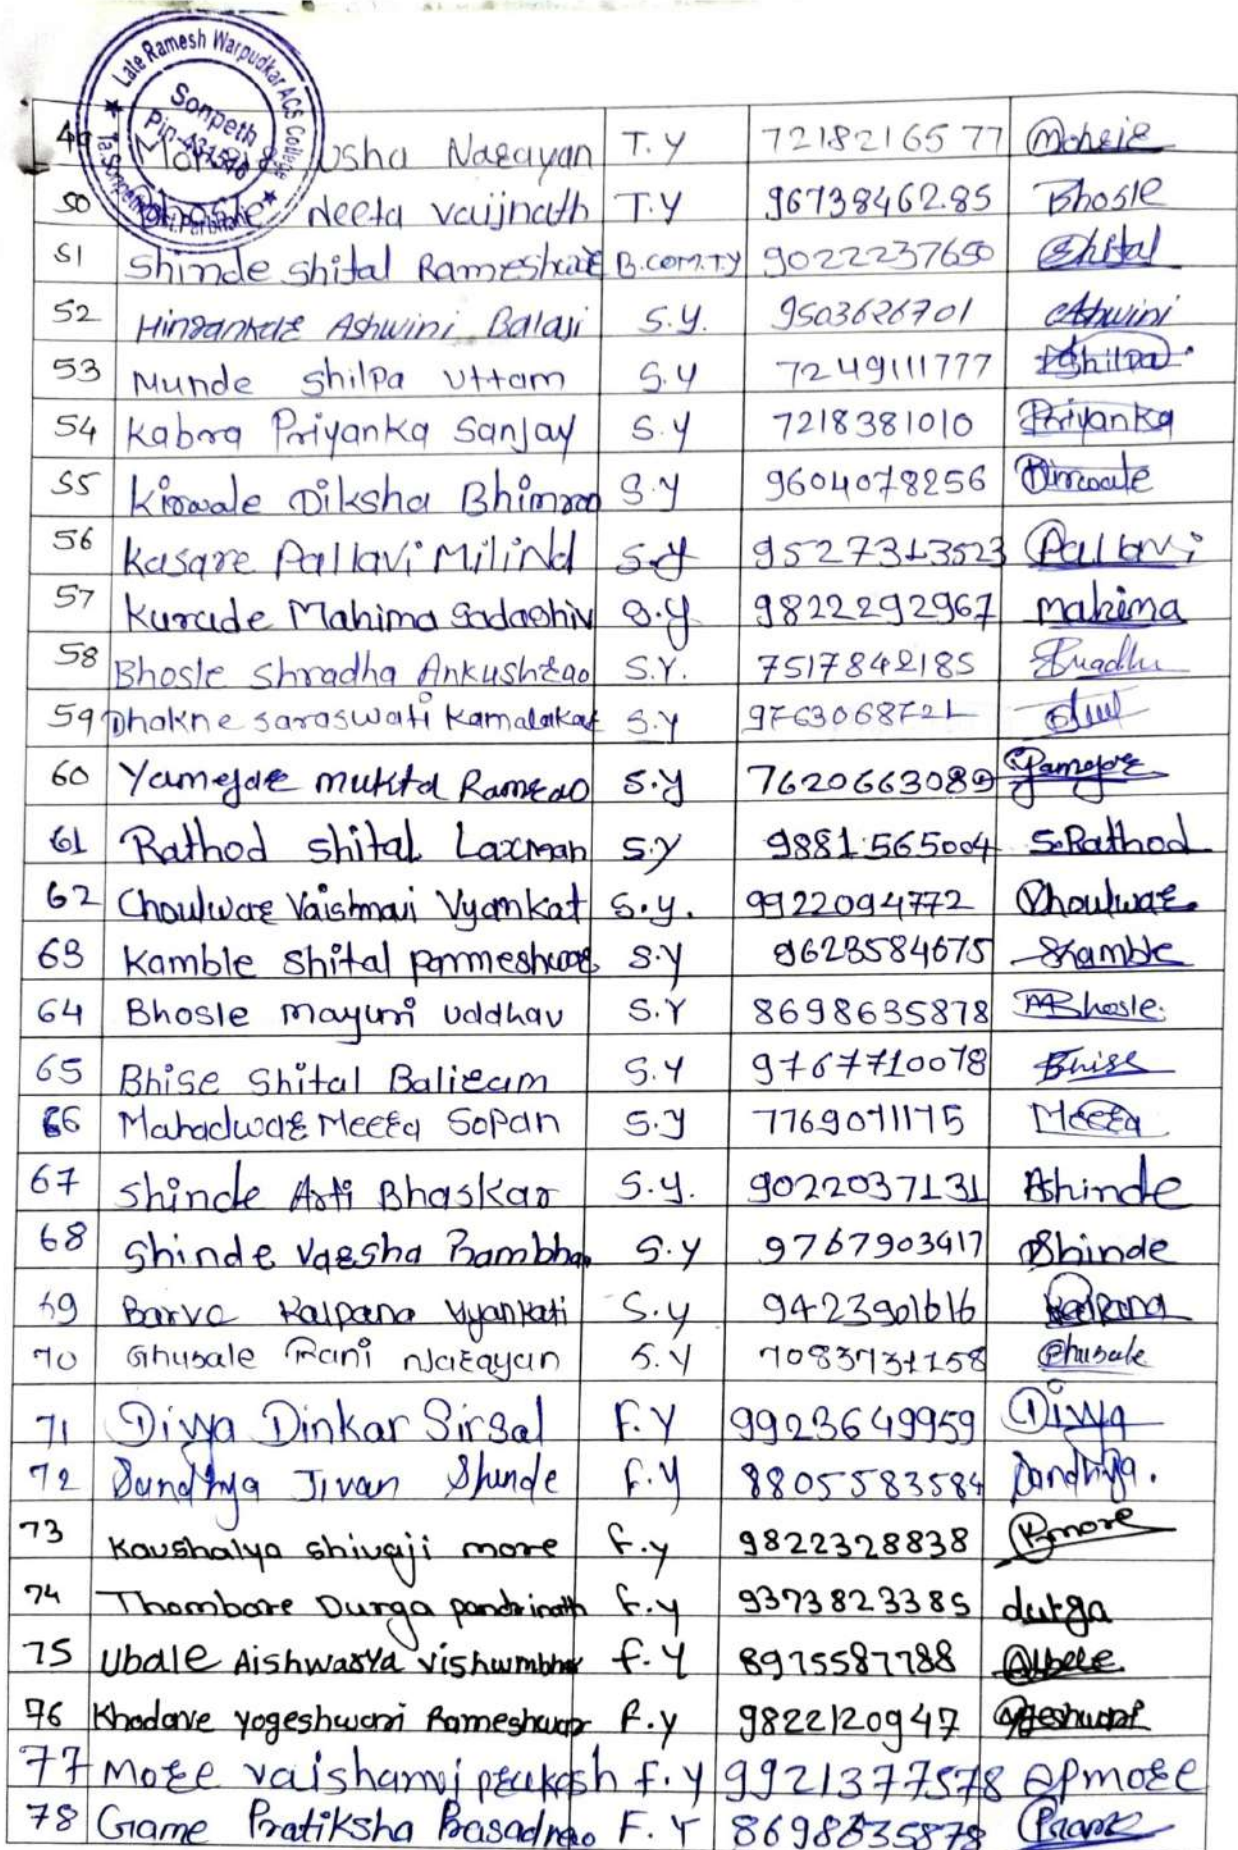 Late Ramesh Warpudkar ACS College
Sonpeth
Pin-431516
Ta. Sonpeth Dist. Parbhani
49 Usha Narayan T.Y 7218216577
50 Bhosle Neeta vaijnath T.Y 9673846285 Bhosle
51 Shinde Shital Rameshwar B.com.T.Y 9022237650 Shital
52 Ashwini Balaji S.Y. 9503626701 Ashwini
53 Munde Shilpa Uttam S.Y 7249111777 Shilpa
54 Kabra Priyanka Sanjay S.Y 7218381010 Priyanka
55 Kirwale Diksha Bhimrao S.Y 9604078256 Kirwale
56 Kasare Pallavi Milind S.Y 9527313523 Pallavi
57 Kurude Mahima Sadashiv S.Y 9822292967 mahima
58 Bhosle Shradha Ankushrao S.Y. 7517842185
59 Dhakne Saraswati Kamalakar S.Y 9763068721
60 Yamejar mukta Ramrao S.Y 7620663089 Yamejar
61 Rathod Shital Laxman S.Y 9881565004 S.Rathod
62 Choulwar Vaishnavi Vyankat S.Y. 9922094772 Choulwar
63 Kamble Shital parmeshwar S.Y 9623584675 Skamble
64 Bhosle mayuri Uddhav S.Y 8698635878 MBhosle.
65 Bhise Shital Baliram S.Y 9767710078 Bhise
66 Mahadwar Meera Sopan S.Y 7769071175 Meera
67 Shinde Arti Bhaskar S.Y. 9022037131 Ashinde
68 Shinde Varsha Rambhau S.Y 9767903417 Shinde
69 Barve Kalpana Vyankati S.Y 9423901616 Kalpana
70 Ghusale Rani Narayan S.Y 7083731158 Ghusale
71 Divya Dinkar Sirsal F.Y 9923649959 Divya
72 Sandhya Jivan Shinde F.Y 8805583584 Sandhya.
73 Kaushalya shivaji more F.Y 9822328838 Kmore
74 Thombare Durga pandrinath F.Y 9373823385 durga
75 Ubale Aishwarya vishwmbhar F.Y 8975587788 Ubale
76 Khodave yogeshwari Rameshwar F.Y 9822120947
77 More vaishanvi prakash F.Y 9921377578 vpmore
78 Game Pratiksha Prasadrao F.Y 8698635878